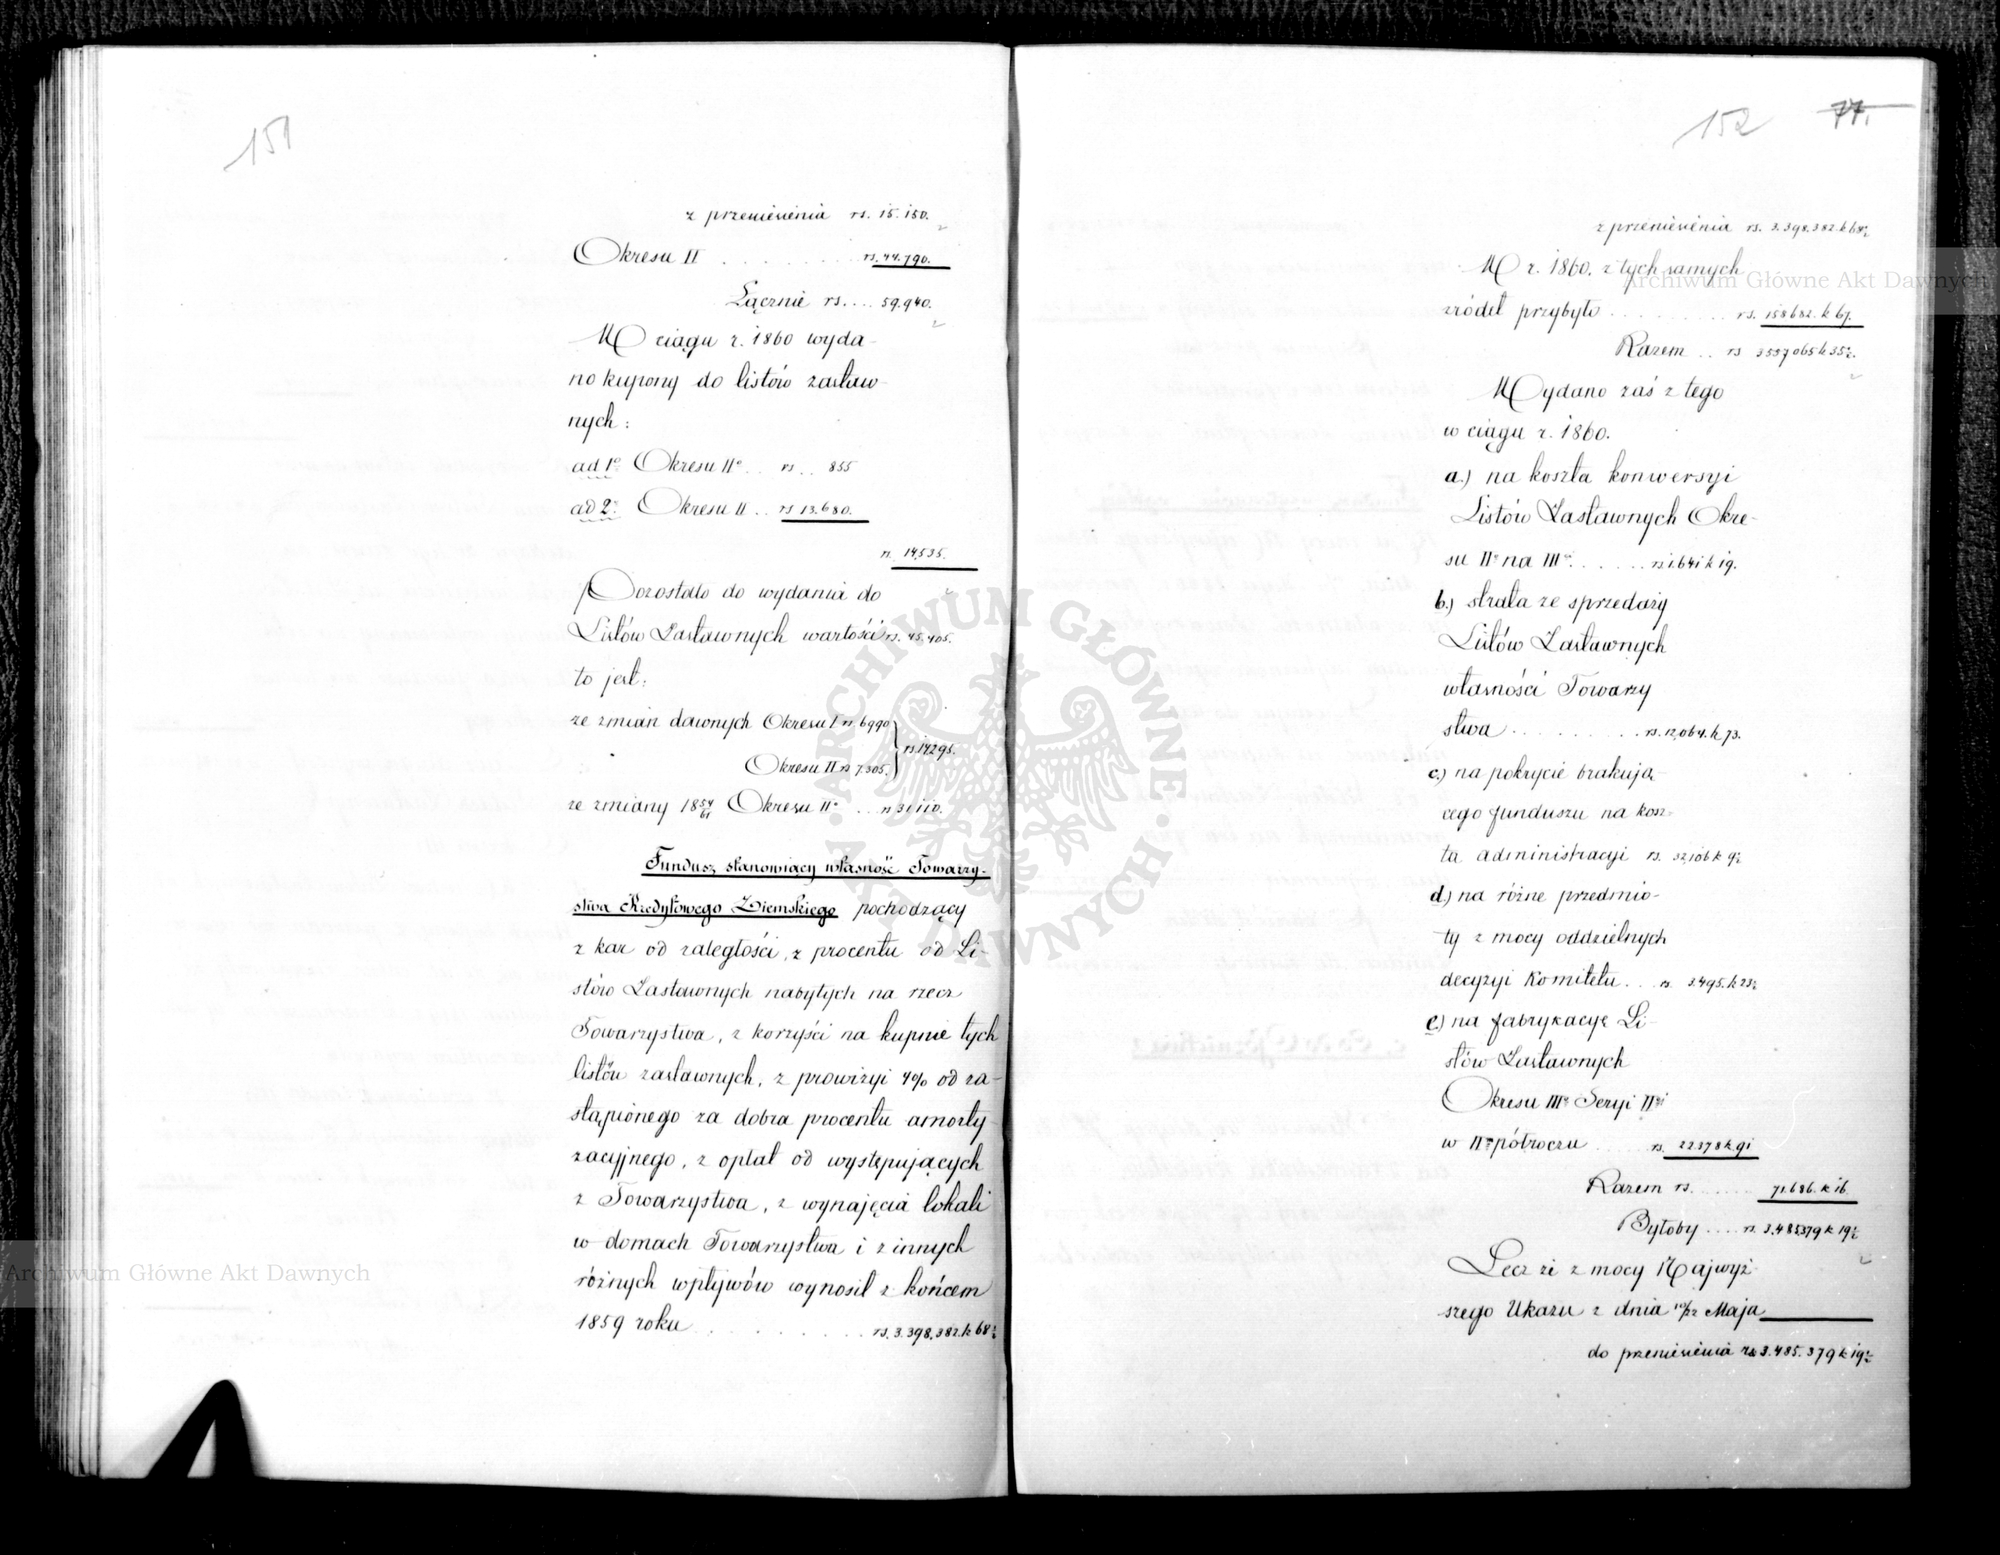 151
z przeniesienia rs. 15.150.
Okresu II . . . . . . . . . rs. 44.790.
Łącznie rs. . . . 59.940.
W ciągu r. 1860 wyda-
no kupony do listów zastaw-
nych:
ad 1o Okresu IIo . . rs. . . 855
ad 2o Okresu II . . rs 13.680.
rs. 14535.
Pozostało do wydania do
Listów Zastawnych wartości rs. 45.405.
to jest:
ze zmian dawnych Okresu I rs 6990
rs. 14295.
Okresu II rs 7.305.
ze zmiany 1854/61 Okresu IIo . . . rs 31110.
Fundusz stanowiący własność Towarzy-
stwa Kredytowego Ziemskiego pochodzący
z kar od zaległości, z procentu od Li-
stów Zastawnych nabytych na rzecz
Towarzystwa, z korzyści na kupnie tych
listów zastawnych, z prowizyi 4% od za-
stąpionego za dobra procentu amorty-
zacyjnego, z opłat od występujących
z Towarzystwa, z wynajęcia lokali
w domach Towarzystwa i z innych
różnych wpływów wynosił z końcem
1859 roku . . . . . . . . . rs. 3.398.382. k 68½
152 77.
z przeniesienia rs. 3.398.382. k 68½
W r. 1860. z tych samych
źródeł przybyło . . . . . . . . . rs. 158682. k 67.
Razem . . rs 3557065 k 35½.
Wydano zaś z tego
w ciągu r. 1860.
a.) na koszta konwersyi
Listów Zastawnych Okre-
su IIo na IIIci . . . . . . rs 1.641 k 19.
b.) strata ze sprzedaży
Listów Zastawnych
własności Towarzy
stwa . . . . . . . . . rs. 12,064. k 73.
c.) na pokrycie brakują-
cego funduszu na kosz-
ta administracyi rs. 32,106 k 9½
d.) na różne przedmio-
ty z mocy oddzielnych
decyzyi Komitetu . . . rs. 3.495. k 23½
e) na fabrykacyę Li-
stów Zastawnych
Okresu IIIo Seryi IIej
w IIm półroczu . . . . . rs. 22378 k. 91
Razem rs. . . . . . . 71.686. k 16.
Byłoby . . . . rs. 3.485379 k 19½
Lecz że z mocy Najwyż-
szego Ukazu z dnia 10/22 Maja
do przeniesienia rs 3.485.379 k 19½
ARCHIWUM GŁÓWNE
AKT DAWNYCH
Archiwum Główne Akt Dawnych
Archiwum Główne Akt Dawnych